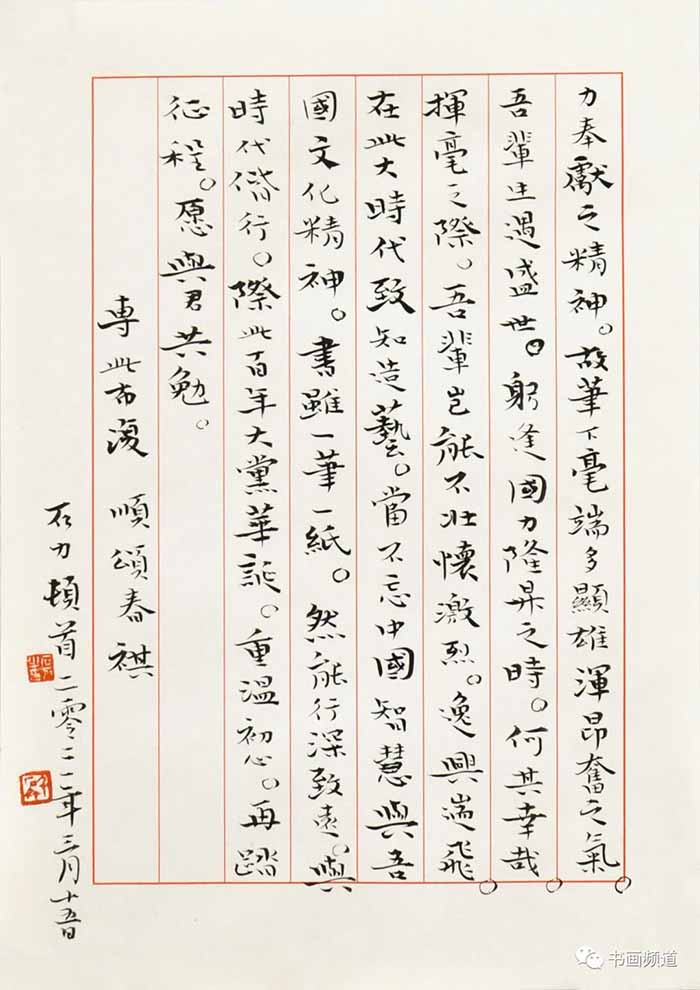 力奉獻之精神。故筆下毫端多顯雄渾昂奮之氣。
吾輩生遇盛世。躬逢國力隆昇之時。何其幸哉。
揮毫之際。吾輩豈能不壯懷激烈。逸興遄飛。
在此大時代致知造藝。當不忘中國智慧與吾
國文化精神。書雖一筆一紙。然能行深致遠。與
時代偕行。際此百年大黨華誕。重溫初心。再踏
征程。愿與君共勉。
專此布復 順頌春祺
石力頓首 二零二一年三月十五日
书画频道